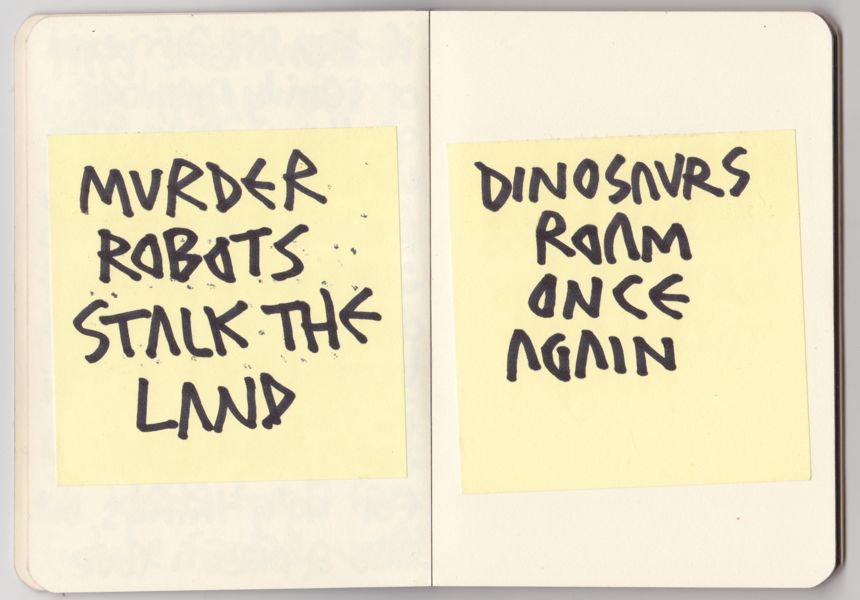 MURDER
ROBOTS
STALK THE
LAND
DINOSAURS
ROAM
ONCE
AGAIN